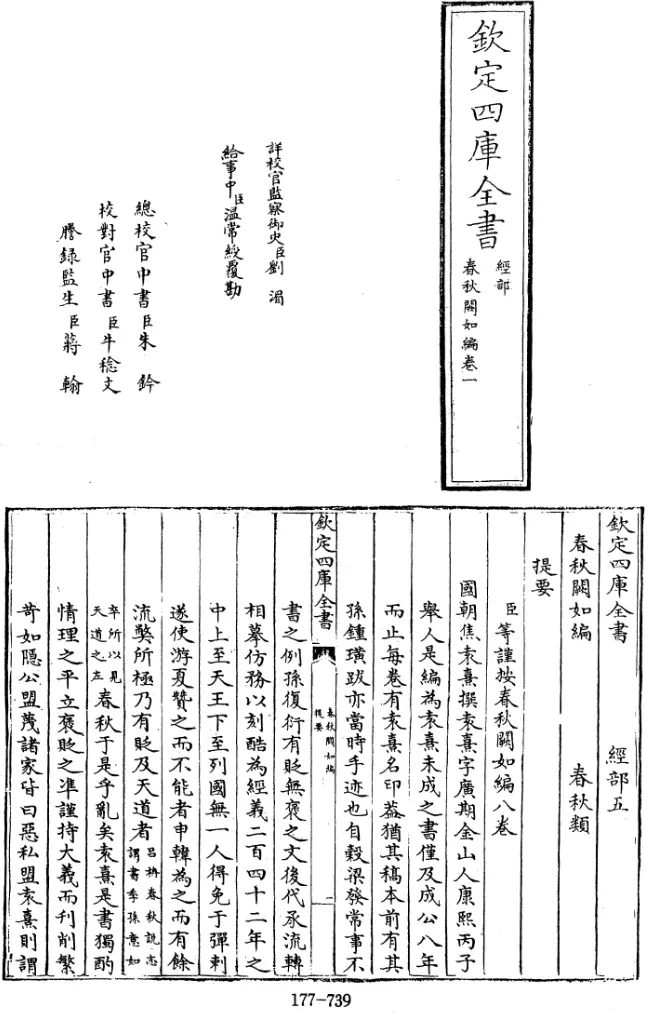 欽定四庫全書
經部
春秋闕如編卷一
詳校官監察御史臣劉湄
給事中臣温常綬覆勘
總校官中書臣朱鈐
校對官中書臣牛稔文
謄録監生臣蔣翰
欽定四庫全書 經部五
春秋闕如編 春秋類
提要
臣等謹按春秋闕如編八卷
國朝焦袁熹撰袁熹字廣期金山人康熙丙子
舉人是編為袁熹未成之書僅及成公八年
而止每卷有袁熹名印葢猶其稿本前有其
孫鍾璜跋亦當時手迹也自穀梁發常事不
欽定四庫全書
春秋闕如編
提要
一
書之例孫復衍有貶無褒之文後代承流轉
相摹仿務以刻酷為經義二百四十二年之
中上至天王下至列國無一人得免于彈刺
遂使游夏贊之而不能者申韓為之而有餘
流獘所極乃有貶及天道者吕柟春秋說志謂書季孫意如
卒所以見天道之左春秋于是乎亂矣袁熹是書獨酌
情理之平立褒貶之準謹持大義而刋削繁
苛如隐公盟蔑諸家皆曰惡私盟袁熹則謂
177-739